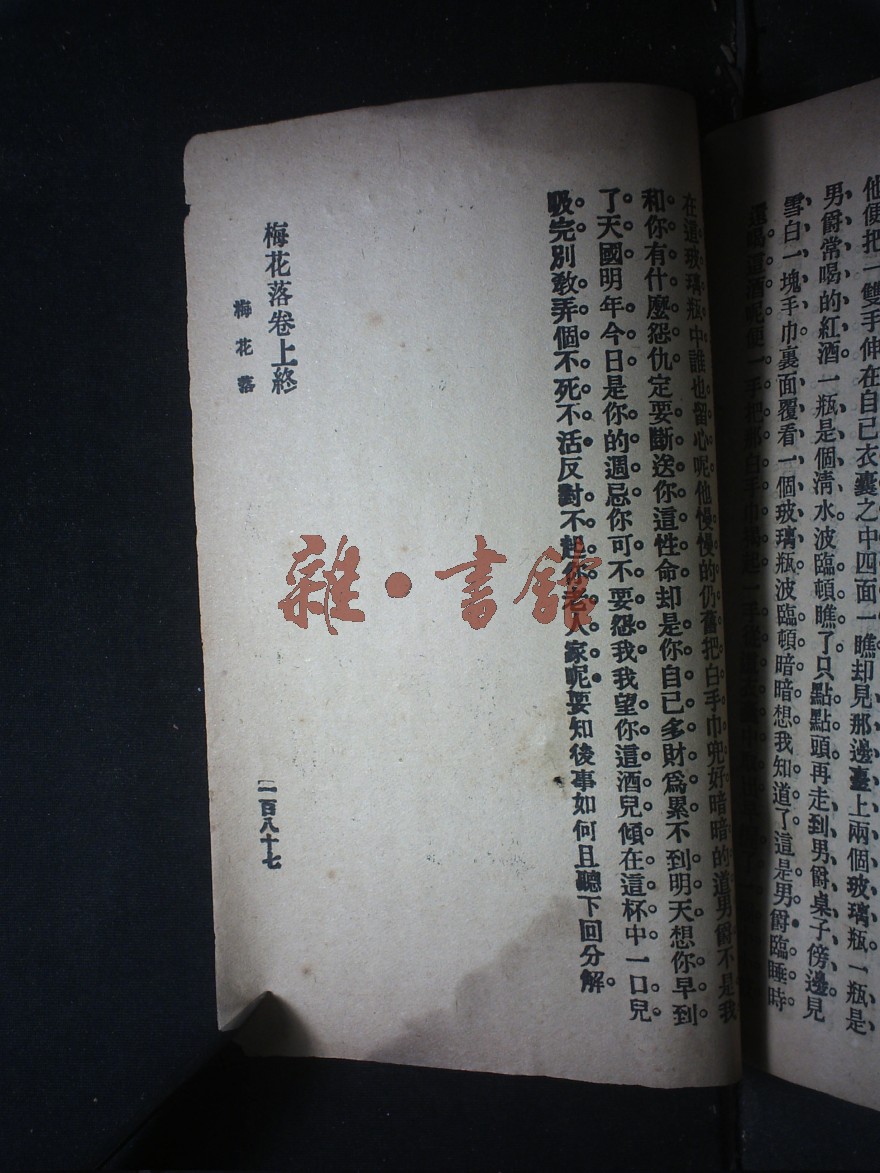 他便把一雙手伸在自已衣囊之中四面一瞧却見那邊臺上兩個玻璃瓶一瓶是
男爵常喝的紅酒一瓶是個清水波臨頓瞧了只點點頭再走到男爵桌子傍邊見
雪白一塊手巾裏面覆看一個玻璃瓶波臨頓暗暗想我知道了這是男爵臨睡時
還喝這酒呢便一手把那白手巾
在這玻璃瓶中誰也留心呢他慢慢的仍舊把白手巾兜好暗暗的道男爵不是我
和你有什麼怨仇定要斷送你這性命却是你自已多財爲累不到明天想你早到
了天國明年今日是你的週忌你可不要怨我我望你這酒兒傾在這杯中一口兒
吸完別敎弄個不死不活反對不起你老人家呢要知後事如何且聽下回分解。
梅花落卷上終
梅花落
一百八十七
雜·書館